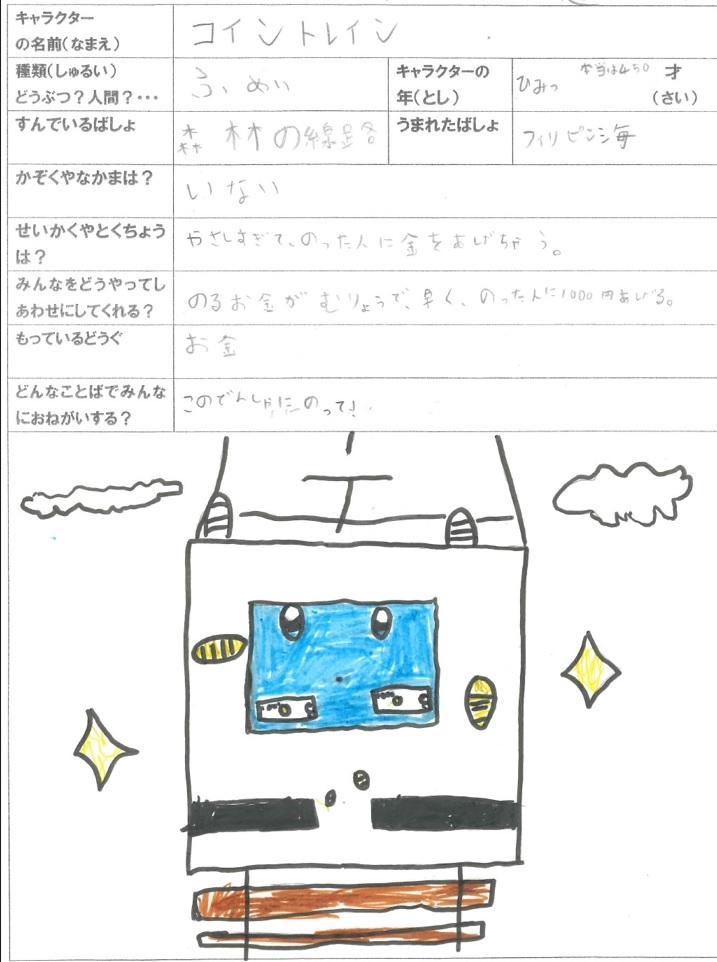 キャラクター
の名前(なまえ)
コイントレイン
種類(しゅるい)
どうぶつ？人間？・・・
ふめい
キャラクターの
年(とし)
ひみつ 本当は450 才
(さい)
すんでいるばしょ
森林の線路
うまれたばしょ
フィリピン海
かぞくやなかまは？
いない
せいかくやとくちょう
は？
やさしすぎて、のった人に金をあげちゃう。
みんなをどうやってし
あわせにしてくれる？
のるお金がむりょうで、早く、のった人に1000円あげる。
もっているどうぐ
お金
どんなことばでみんな
におねがいする？
このでんしゃにのって!